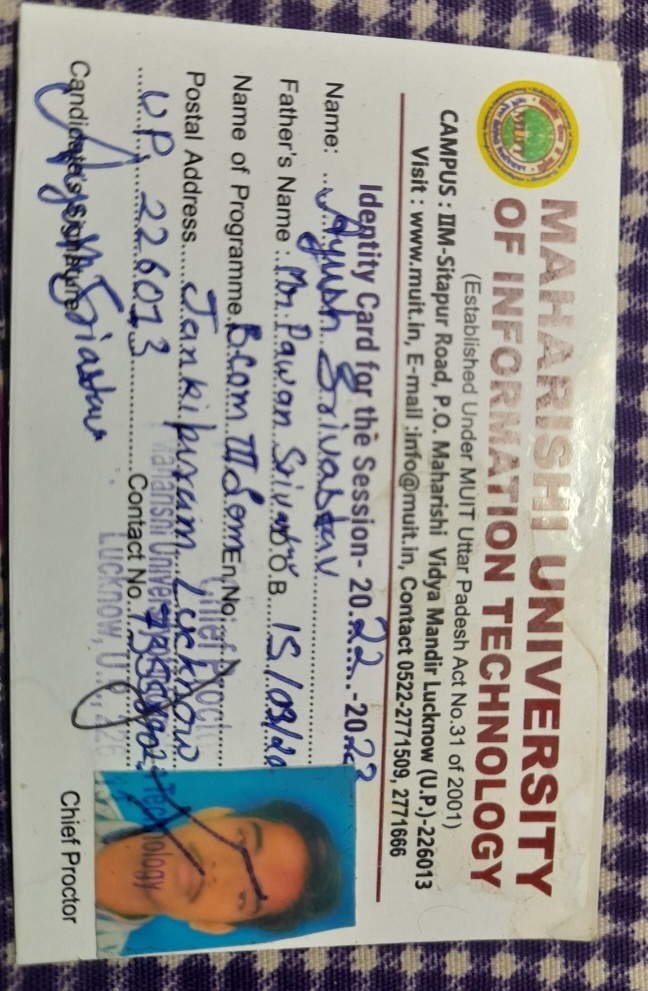 MAHARISHI UNIVERSITY
OF INFORMATION TECHNOLOGY
(Established Under MUIT Uttar Padesh Act No.31 of 2001)
CAMPUS : IIM-Sitapur Road, P.O. Maharishi Vidya Mandir Lucknow (U.P.)-226013
Visit : www.muit.in, E-mail :info@muit.in, Contact 0522-2771509, 2771666
Identity Card for the Session- 2022 -2023
Name: Ayush Srivastav
Father's Name : Mr. Pawan D.O.B. 15/03/20
Name of Programme B.Com III Sem En.No.
Postal Address Jankipuram Lucknow
UP 226013 Contact No.
Candidate's Signature
Chief Proctor
Maharishi University Technology
Lucknow, U.P., 226